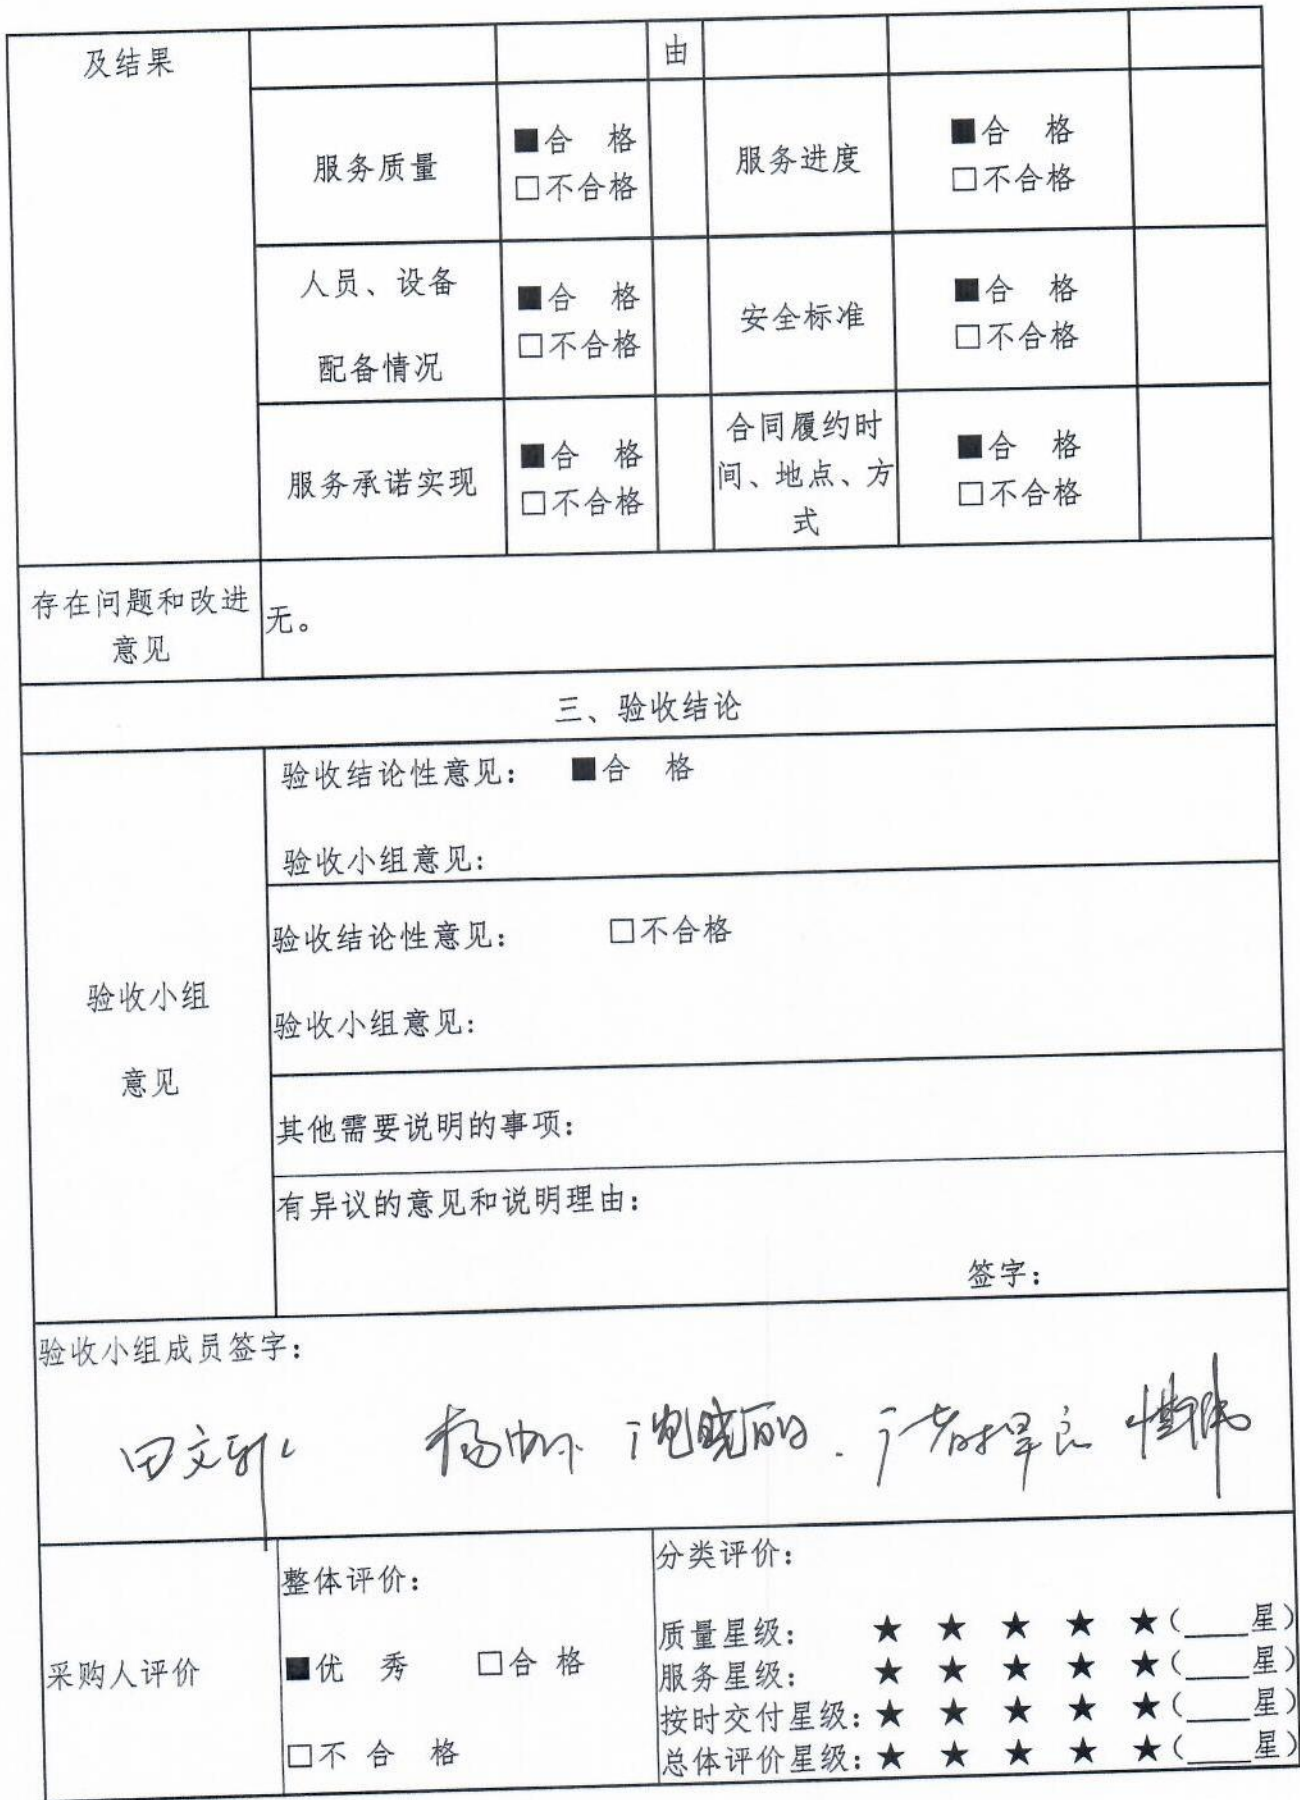 及结果
由
服务质量
■合 格
□不合格
服务进度
■合 格
□不合格
人员、设备
配备情况
■合 格
□不合格
安全标准
■合 格
□不合格
服务承诺实现
■合 格
□不合格
合同履约时
间、地点、方
式
■合 格
□不合格
存在问题和改进
意见
无。
三、验收结论
验收小组
意见
验收结论性意见: ■合 格
验收小组意见:
验收结论性意见: □不合格
验收小组意见:
其他需要说明的事项:
有异议的意见和说明理由:
签字:
验收小组成员签字:
采购人评价
整体评价:
■优 秀 □合 格
□不 合 格
分类评价:
质量星级: ★ ★ ★ ★ ★(___星)
服务星级: ★ ★ ★ ★ ★(___星)
按时交付星级: ★ ★ ★ ★ ★(___星)
总体评价星级: ★ ★ ★ ★ ★(___星)